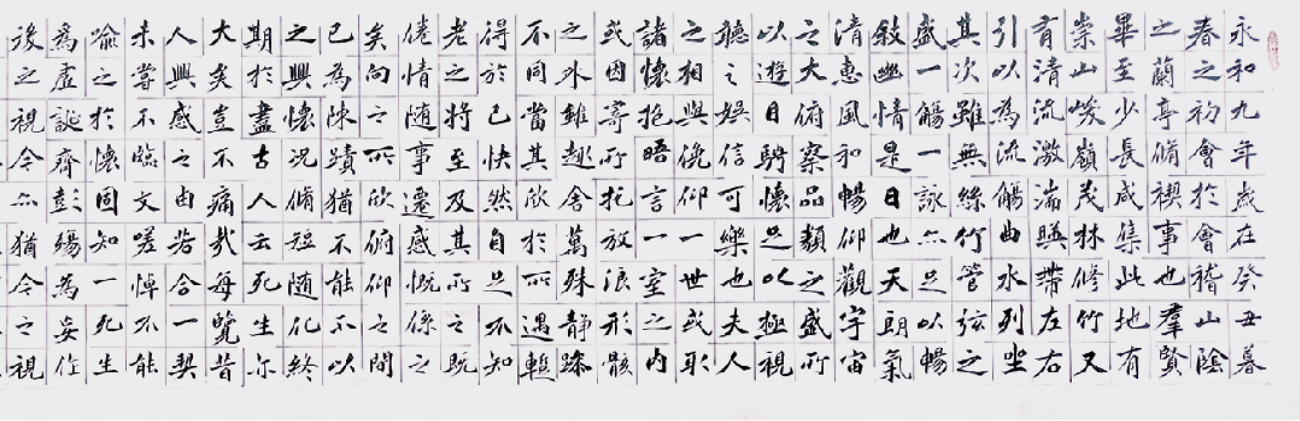 永和九年歲在癸丑暮
春之初會於會稽山陰
之蘭亭脩禊事也羣賢
畢至少長咸集此地有
崇山峻嶺茂林修竹又
有清流激湍暎帶左右
引以為流觴曲水列坐
其次雖無絲竹管弦之
盛一觴一詠亦足以暢
敍幽情是日也天朗氣
清惠風和暢仰觀宇宙
之大俯察品類之盛所
以遊目騁懷足以極視
聽之娛信可樂也夫人
之相與俛仰一世或取
諸懷抱晤言一室之內
或因寄所托放浪形骸
之外雖趣舍萬殊静躁
不同當其欣於所遇暫
得於己快然自足不知
老之將至及其所之既
倦情随事遷感慨係之
矣向之所欣俯仰之間
已為陳蹟猶不能不以
之興懷況脩短随化終
期於盡古人云死生尔
大矣豈不痛哉每覽昔
人興感之由若合一契
未嘗不臨文嗟悼不能
喻之於懷固知一死生
為虛誕齊彭殤為妄作
後之視今亦猶今之視